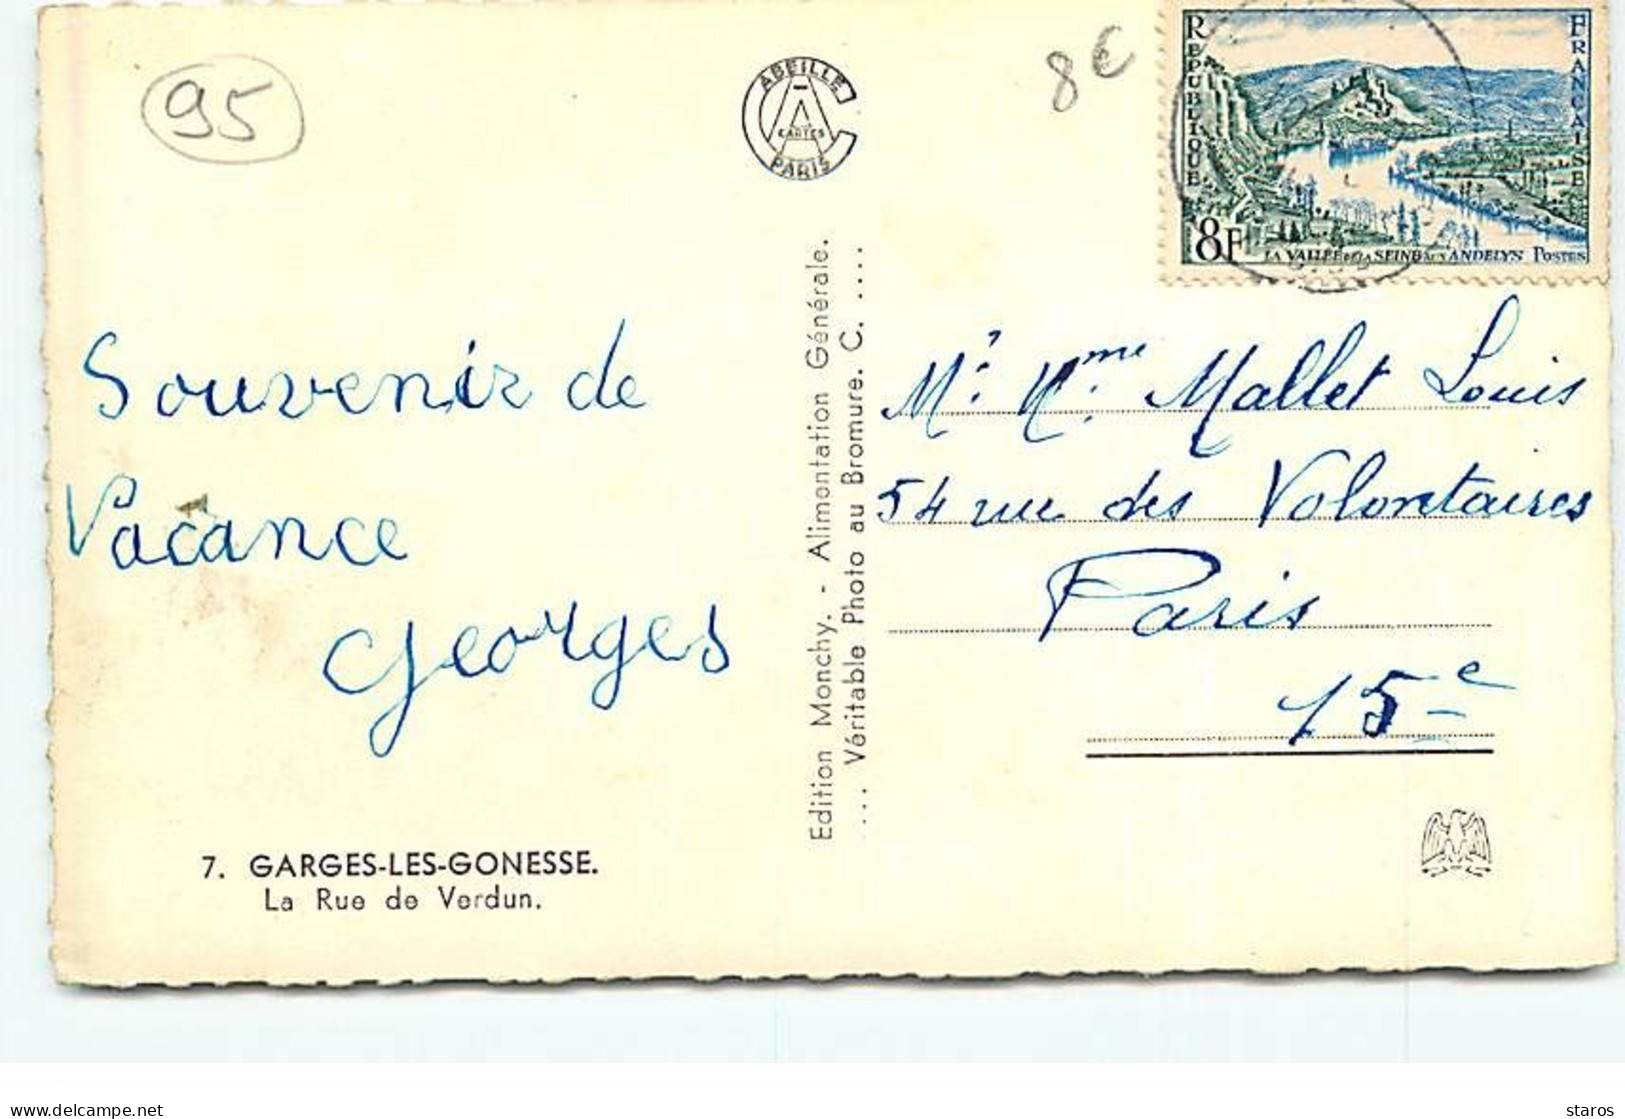 95
ABEILLE
CARTES
PARIS
8€
REPUBLIQUE
FRANÇAISE
8F
LA VALLÉE DE LA SEINE AUX ANDELYS POSTES
Souvenir de
Vacance
Georges
Edition Monchy. - Alimontation Générale.
.... Véritable Photo au Bromure. C. ....
Mr. Mme. Mallet Louis
54 rue des Volontaires
Paris
15e
7. GARGES-LES-GONESSE.
La Rue de Verdun.
delcampe.net
staros